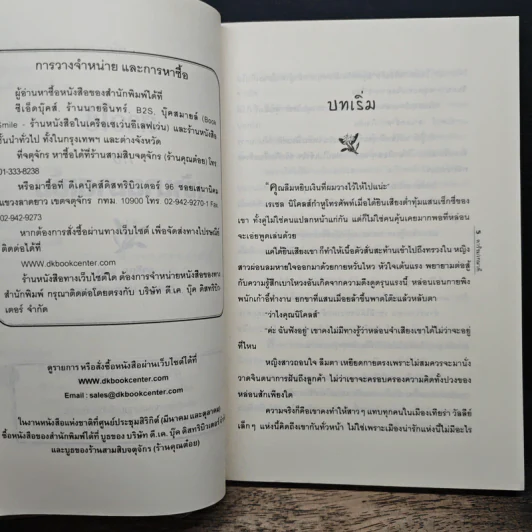 การวางจำหน่าย และการหาซื้อ
ผู้อ่านหาซื้อหนังสือของสำนักพิมพ์ได้ที่
ซีเอ็ดบุ๊คส์, ร้านนายอินทร์, B2S, บุ๊คสมายล์ (Book
Smile - ร้านหนังสือในเครือเซเว่นอีเลฟเว่น) และร้านหนังสือ
ชั้นนำทั่วไป ทั้งในกรุงเทพฯ และต่างจังหวัด
ที่จตุจักร หาซื้อได้ที่ร้านสามสิบจตุจักร (ร้านคุณต้อย) โทร
01-333-8238
หรือมาซื้อที่ ดีเคบุ๊คส์ดิสทริบิวเตอร์ 96 ซอยเสนานิคม
แขวงลาดยาว เขตจตุจักร กทม. 10900 โทร. 02-942-9270-1 Fax.
02-942-9273
หากต้องการสั่งซื้อผ่านทางเว็บไซต์ เพื่อจัดส่งทางไปรษณีย์
ติดต่อได้ที่
WWW.dkbookcenter.com
ร้านหนังสือทางเว็บไซต์ใด ต้องการจำหน่ายหนังสือของทาง
สำนักพิมพ์ กรุณาติดต่อโดยตรงกับ บริษัท ดี.เค. บุ๊ค ดิสทริบิว
เตอร์ จำกัด
ดูรายการ หรือสั่งซื้อหนังสือผ่านเว็บไซต์ได้ที่
WWW.dkbookcenter.com
Email : sales@dkbookcenter.com
ในงานหนังสือแห่งชาติที่ศูนย์ประชุมสิริกิติ์ (มีนาคม และตุลาคม)
ซื้อหนังสือของสำนักพิมพ์ได้ที่ บูธของ บริษัท ดี.เค. บุ๊ค ดิสทริบิวเตอร์
และบูธของร้านสามสิบจตุจักร (ร้านคุณต้อย)
บทเริ่ม
"คุณลืมหยิบเงินที่ผมวางไว้ให้ไปแน่ะ"
เรเชล นิโคลส์กำหูโทรศัพท์เมื่อได้ยินเสียงต่ำทุ้มแสนเซ็กซี่ของ
เขา ทั้งคู่ไม่ใช่คนแปลกหน้าแก่กัน แต่ก็ไม่ใช่คนคุ้นเคยมากพอที่หล่อน
จะเอ่ยพูดเล่นด้วย
แค่ได้ยินเสียงเขา ก็ทำให้เนื้อตัวสั่นสะท้านเข้าไปถึงทรวงใน หญิง
สาวผ่อนลมหายใจออกมาด้วยกายหวั่นไหว หัวใจเต้นแรง พยายามต่อสู้
กับความรู้สึกเบาโหวงอันเกิดจากความดึงดูดรุนแรงนี้ หล่อนเอนกายพิง
พนักเก้าอี้ทำงาน ยกขาที่แสนเมื่อยล้าขึ้นพาดโต๊ะแล้วหลับตา
"ว่าไงคุณนิโคลส์"
"ค่ะ ฉันฟังอยู่" เขาคงไม่มีทางรู้ว่าหล่อนจำเสียงเขาได้ไม่ว่าจะอยู่
ที่ไหน
หญิงสาวถอนใจ ลืมตา เหยียดกายตรงเพราะไม่สมควรจะมานั่ง
วาดจินตนาการฝันถึงลูกค้า ไม่ว่าเขาจะครอบครองความคิดทั้งปวงของ
หล่อนสักเพียงใด
ความจริงก็คือเขาคงทำให้สาวๆ แทบทุกคนในเมืองเทียร่า วัลลีย์
เล็กๆ แห่งนี้คิดถึงเขากันทั่วหน้า ไม่ใช่เพราะเมืองน่ารักแห่งนี้ไม่มีอะไร
5